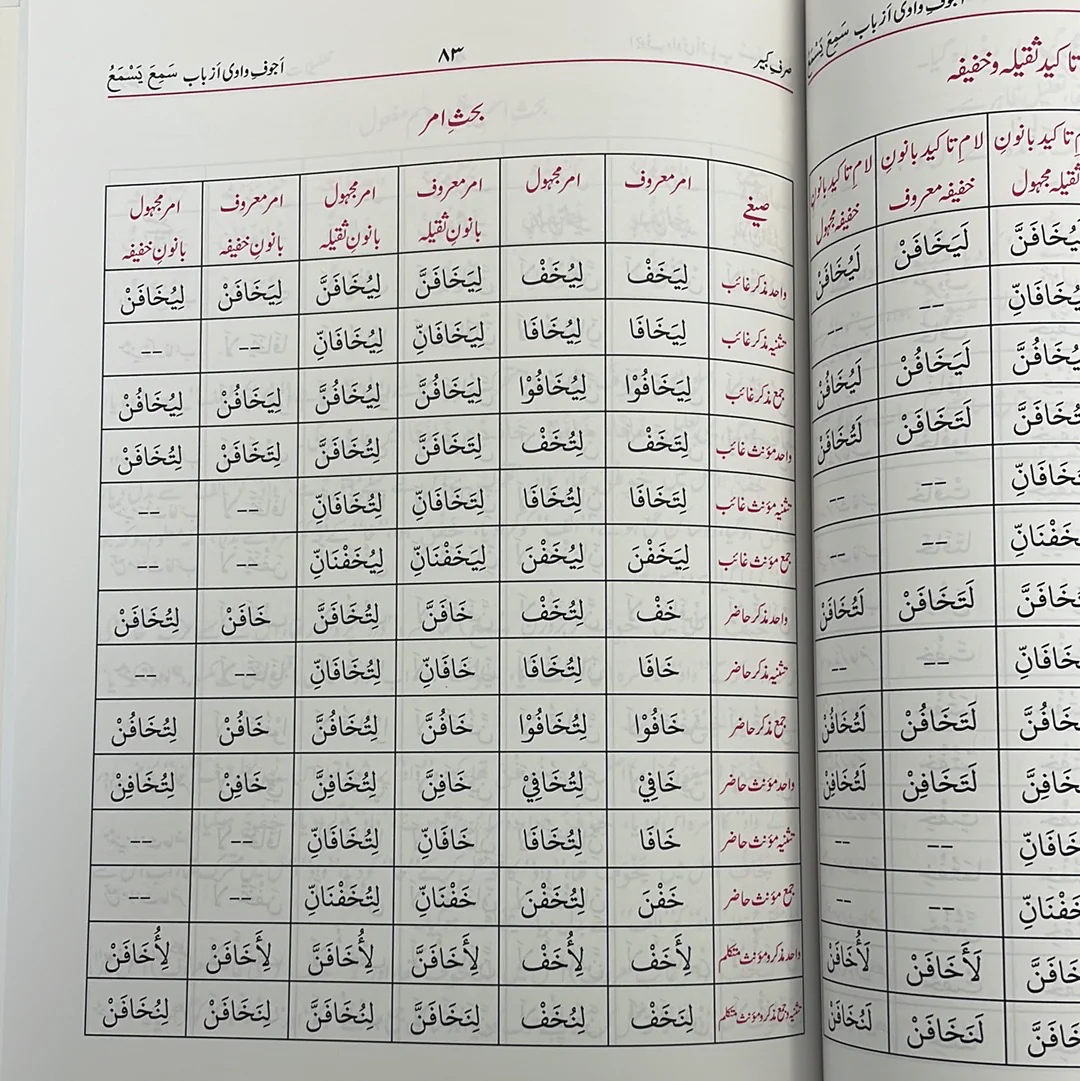 صرفِ کبیر ۸۳ اَجوفِ واوی اَز باب سَمِعَ یَسْمَعُ
بحثِ امر
صیغے امر معروف امر مجہول امر معروف بانونِ ثقیلہ امر مجہول بانونِ ثقیلہ امر معروف بانونِ خفیفہ امر مجہول بانونِ خفیفہ
واحد مذکر غائب لِيَخَفْ لِيُخَفْ لِيَخَافَنَّ لِيُخَافَنَّ لِيَخَافَنْ لِيُخَافَنْ
تثنیہ مذکر غائب لِيَخَافَا لِيُخَافَا لِيَخَافَانِّ لِيُخَافَانِّ -- --
جمع مذکر غائب لِيَخَافُوْا لِيُخَافُوْا لِيَخَافُنَّ لِيُخَافُنَّ لِيَخَافُنْ لِيُخَافُنْ
واحد مؤنث غائب لِتَخَفْ لِتُخَفْ لِتَخَافَنَّ لِتُخَافَنَّ لِتَخَافَنْ لِتُخَافَنْ
تثنیہ مؤنث غائب لِتَخَافَا لِتُخَافَا لِتَخَافَانِّ لِتُخَافَانِّ -- --
جمع مؤنث غائب لِيَخَفْنَ لِيُخَفْنَ لِيَخَفْنَانِّ لِيُخَفْنَانِّ -- --
واحد مذکر حاضر خَفْ لِتُخَفْ خَافَنَّ لِتُخَافَنَّ خَافَنْ لِتُخَافَنْ
تثنیہ مذکر حاضر خَافَا لِتُخَافَا خَافَانِّ لِتُخَافَانِّ -- --
جمع مذکر حاضر خَافُوْا لِتُخَافُوْا خَافُنَّ لِتُخَافُنَّ خَافُنْ لِتُخَافُنْ
واحد مؤنث حاضر خَافِيْ لِتُخَافِيْ خَافِنَّ لِتُخَافِنَّ خَافِنْ لِتُخَافِنْ
تثنیہ مؤنث حاضر خَافَا لِتُخَافَا خَافَانِّ لِتُخَافَانِّ -- --
جمع مؤنث حاضر خَفْنَ لِتُخَفْنَ خَفْنَانِّ لِتُخَفْنَانِّ -- --
واحد مذکر و مؤنث متکلم لِأَخَفْ لِأُخَفْ لِأَخَافَنَّ لِأُخَافَنَّ لِأَخَافَنْ لِأُخَافَنْ
تثنیہ و جمع مذکر و مؤنث متکلم لِنَخَفْ لِنُخَفْ لِنَخَافَنَّ لِنُخَافَنَّ لِنَخَافَنْ لِنُخَافَنْ
اَجوفِ واوی اَز باب سَمِعَ یَسْمَعُ
تاکید ثقیلہ و خفیفہ
تاکید بانونِ ثقیلہ مجہول لامِ تاکید بانونِ خفیفہ معروف لامِ تاکید بانونِ خفیفہ مجہول
لَيَخَافَنْ لَيُخَافَنْ
-- --
لَيَخَافُنْ لَيُخَافُنْ
لَتَخَافَنْ لَتُخَافَنْ
-- --
-- --
لَتَخَافَنْ لَتُخَافَنْ
-- --
لَتَخَافُنْ لَتُخَافُنْ
لَتَخَافِنْ لَتُخَافِنْ
-- --
-- --
لَأَخَافَنْ لَأُخَافَنْ
لَنَخَافَنْ لَنُخَافَنْ